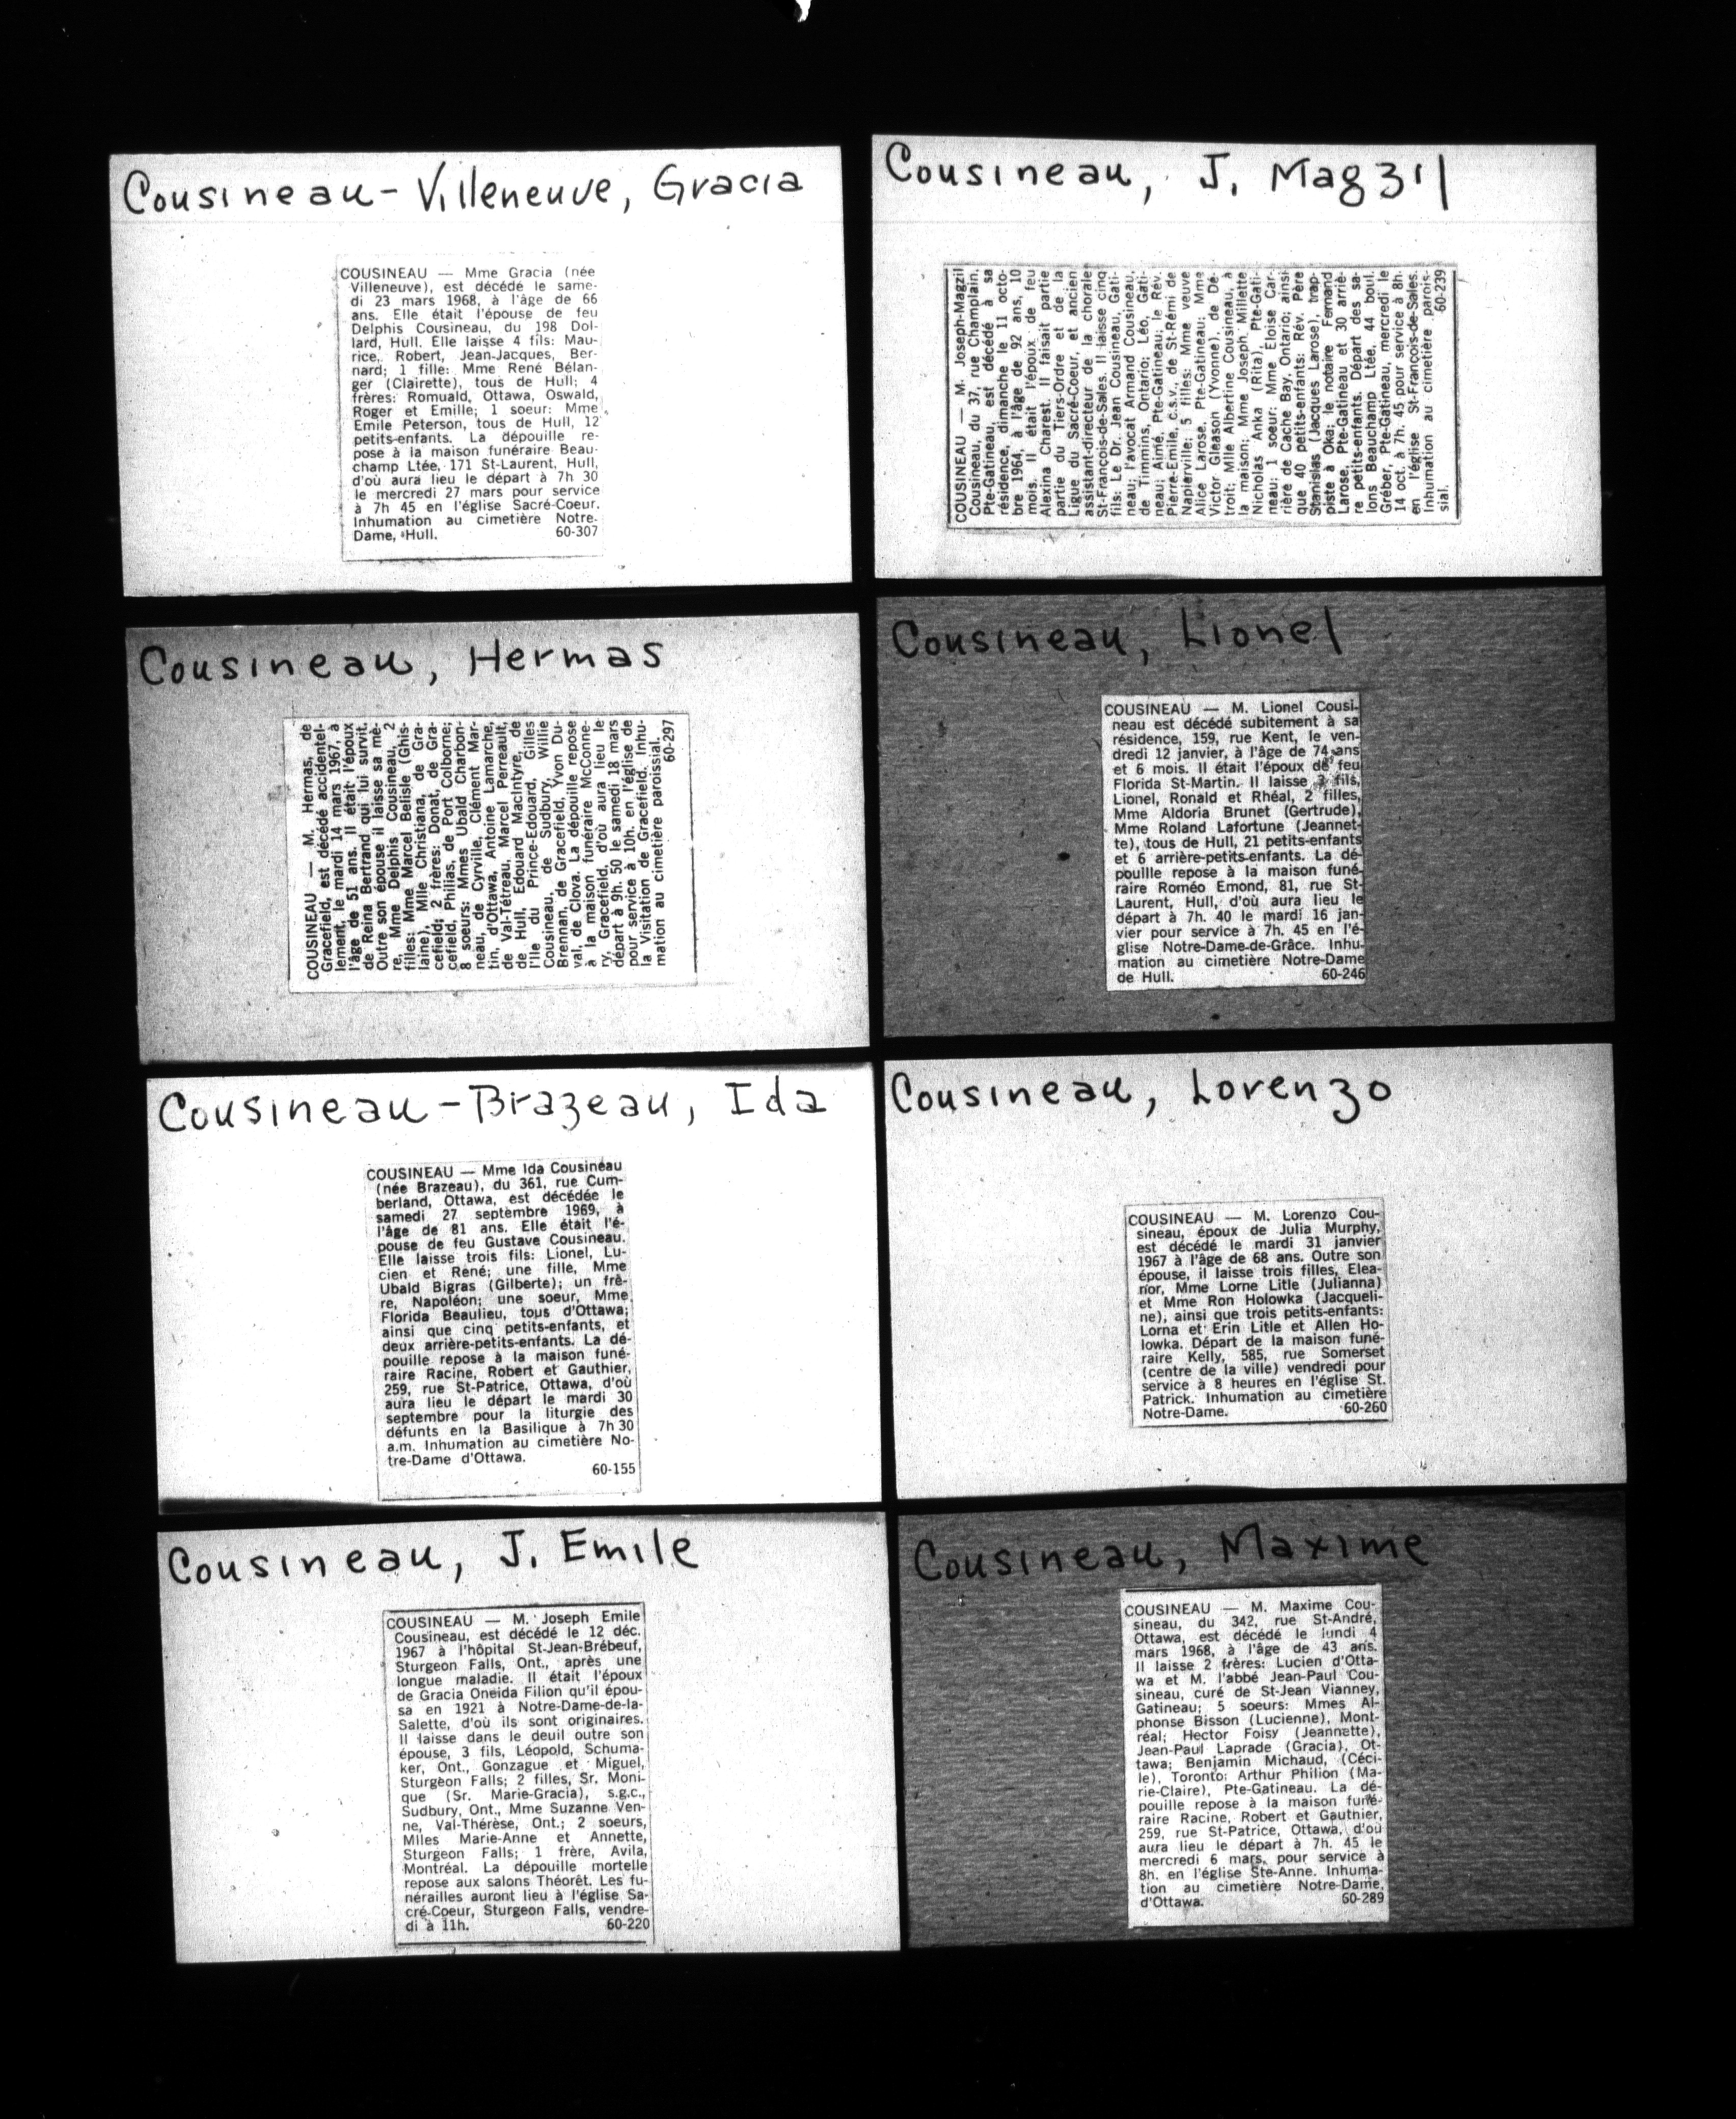 Cousineau-Villeneuve, Gracia
COUSINEAU — Mme Gracia (née
Villeneuve), est décédé le same-
di 23 mars 1968, à l'âge de 66
ans. Elle était l'épouse de feu
Delphis Cousineau, du 198 Dol-
lard, Hull. Elle laisse 4 fils: Mau-
rice, Robert, Jean-Jacques, Ber-
nard; 1 fille: Mme René Bélan-
ger (Clairette), tous de Hull; 4
frères: Romuald, Ottawa, Oswald,
Roger et Emille; 1 soeur: Mme
Emile Peterson, tous de Hull, 12
petits-enfants. La dépouille re-
pose à la maison funéraire Beau-
champ Ltée, 171 St-Laurent, Hull,
d'où aura lieu le départ à 7h 30
le mercredi 27 mars pour service
à 7h 45 en l'église Sacré-Coeur.
Inhumation au cimetière Notre-
Dame, Hull. 60-307
Cousineau, Hermas
COUSINEAU — M. Hermas, de
Gracefield, est décédé accidentel-
lement, le mardi 14 mars 1967, à
l'âge de 51 ans. Il était l'époux
de Reina Bertrand qui lui survit.
Outre son épouse il laisse sa mè-
re, Mme Delphis Cousineau, 2
filles: Mme Marcel Belisle (Ghis-
laine), Mlle Christiana, de Gra-
cefield; 2 frères: Donat, de Gra-
cefield, Philias, de Port Colborne;
8 soeurs: Mmes Ubald Charbon-
neau, de Cyrville, Clément Mar-
tin, d'Ottawa, Antoine Lamarche,
de Val-Tétreau, Marcel Perreault,
de Hull, Edouard MacIntyre, de
l'Ile du Prince-Edouard, Gilles
Cousineau, de Sudbury, Willie
Brennan, de Gracefield, Yvon Du-
val, de Clova. La dépouille repose
à la maison funéraire McConne-
ry, Gracefield, d'où aura lieu le
départ à 9h. 50 le samedi 18 mars
pour service à 10h. en l'église de
la Visitation de Gracefield. Inhu-
mation au cimetière paroissial.
60-297
Cousineau-Brazeau, Ida
COUSINEAU — Mme Ida Cousineau
(née Brazeau), du 361, rue Cum-
berland, Ottawa, est décédée le
samedi 27 septembre 1969, à
l'âge de 81 ans. Elle était l'é-
pouse de feu Gustave Cousineau.
Elle laisse trois fils: Lionel, Lu-
cien et René; une fille, Mme
Ubald Bigras (Gilberte); un frè-
re, Napoléon; une soeur, Mme
Florida Beaulieu, tous d'Ottawa;
ainsi que cinq petits-enfants, et
deux arrière-petits-enfants. La dé-
pouille repose à la maison funé-
raire Racine, Robert et Gauthier,
259, rue St-Patrice, Ottawa, d'où
aura lieu le départ le mardi 30
septembre pour la liturgie des
défunts en la Basilique à 7h 30
a.m. Inhumation au cimetière No-
tre-Dame d'Ottawa.
60-155
Cousineau, J. Emile
COUSINEAU — M. Joseph Emile
Cousineau, est décédé le 12 déc.
1967 à l'hôpital St-Jean-Brébeuf,
Sturgeon Falls, Ont., après une
longue maladie. Il était l'époux
de Gracia Oneida Filion qu'il épou-
sa en 1921 à Notre-Dame-de-la-
Salette, d'où ils sont originaires.
Il laisse dans le deuil outre son
épouse, 3 fils, Léopold, Schuma-
ker, Ont., Gonzague et Miguel,
Sturgeon Falls; 2 filles, Sr. Moni-
que (Sr. Marie-Gracia), s.g.c.,
Sudbury, Ont., Mme Suzanne Ven-
ne, Val-Thérèse, Ont.; 2 soeurs,
Mlles Marie-Anne et Annette,
Sturgeon Falls; 1 frère, Avila,
Montréal. La dépouille mortelle
repose aux salons Théorêt. Les fu-
nérailles auront lieu à l'église Sa-
cré-Coeur, Sturgeon Falls, vendre-
di à 11h. 60-220
Cousineau, J. Magzil
COUSINEAU — M. Joseph-Magzil
Cousineau, du 37, rue Champlain,
Pte-Gatineau, est décédé à sa
résidence, dimanche le 11 octo-
bre 1964, à l'âge de 92 ans, 10
mois. Il était l'époux de feu
Alexina Charest. Il faisait partie
partie du Tiers-Ordre et de la
Ligue du Sacré-Coeur, et ancien
assistant-directeur de la chorale
St-François-de-Sales. Il laisse cinq
fils: Le Dr. Jean Cousineau, Gati-
neau; l'avocat Armand Cousineau,
de Timmins, Ontario; Léo, Gati-
neau; Aimé, Pte-Gatineau; le Rév.
Pierre-Emile, c.s.v., de St-Rémi de
Napierville; 5 filles: Mme veuve
Alice Larose, Pte-Gatineau; Mme
Victor Gleason (Yvonne), de Dé-
troit; Mlle Albertine Cousineau, à
la maison; Mme Joseph Millette
Nicholas Anka (Rita), Pte-Gati-
neau; 1 soeur: Mme Eloise Car-
rière de Cache Bay, Ontario; ainsi
que 40 petits-enfants: Rév. Père
Stanislas (Jacques Larose), trap-
piste à Oka; le notaire Fernand
Larose, Pte-Gatineau et 30 arriè-
re petits-enfants. Départ des sa-
lons Beauchamp Ltée, 44 boul.
Gréber, Pte-Gatineau, mercredi le
14 oct. à 7h. 45 pour service à 8h.
en l'église St-François-de-Sales.
Inhumation au cimetière parois-
sial. 60-239
Cousineau, Lionel
COUSINEAU — M. Lionel Cousi-
neau est décédé subitement à sa
résidence, 159, rue Kent, le ven-
dredi 12 janvier, à l'âge de 74 ans
et 6 mois. Il était l'époux de feu
Florida St-Martin. Il laisse 3 fils,
Lionel, Ronald et Rhéal, 2 filles,
Mme Aldoria Brunet (Gertrude),
Mme Roland Lafortune (Jeannet-
te), tous de Hull, 21 petits-enfants
et 6 arrière-petits-enfants. La dé-
pouille repose à la maison funé-
raire Roméo Emond, 81, rue St-
Laurent, Hull, d'où aura lieu le
départ à 7h. 40 le mardi 16 jan-
vier pour service à 7h. 45 en l'é-
glise Notre-Dame-de-Grâce. Inhu-
mation au cimetière Notre-Dame
de Hull. 60-246
Cousineau, Lorenzo
COUSINEAU — M. Lorenzo Cou-
sineau, époux de Julia Murphy,
est décédé le mardi 31 janvier
1967 à l'âge de 68 ans. Outre son
épouse, il laisse trois filles, Elea-
nor, Mme Lorne Litle (Julianna)
et Mme Ron Holowka (Jacqueli-
ne), ainsi que trois petits-enfants:
Lorna et Erin Litle et Allen Ho-
lowka. Départ de la maison funé-
raire Kelly, 585, rue Somerset
(centre de la ville) vendredi pour
service à 8 heures en l'église St.
Patrick. Inhumation au cimetière
Notre-Dame. 60-260
Cousineau, Maxime
COUSINEAU — M. Maxime Cou-
sineau, du 342, rue St-André,
Ottawa, est décédé le lundi 4
mars 1968, à l'âge de 43 ans.
Il laisse 2 frères: Lucien d'Otta-
wa et M. l'abbé Jean-Paul Cou-
sineau, curé de St-Jean Vianney,
Gatineau; 5 soeurs: Mmes Al-
phonse Bisson (Lucienne), Mont-
réal; Hector Foisy (Jeannette),
Jean-Paul Laprade (Gracia), Ot-
tawa; Benjamin Michaud, (Céci-
le), Toronto; Arthur Philion (Ma-
rie-Claire), Pte-Gatineau. La dé-
pouille repose à la maison funé-
raire Racine, Robert et Gauthier,
259, rue St-Patrice, Ottawa, d'où
aura lieu le départ à 7h. 45 le
mercredi 6 mars, pour service à
8h. en l'église Ste-Anne. Inhuma-
tion au cimetière Notre-Dame,
d'Ottawa. 60-289